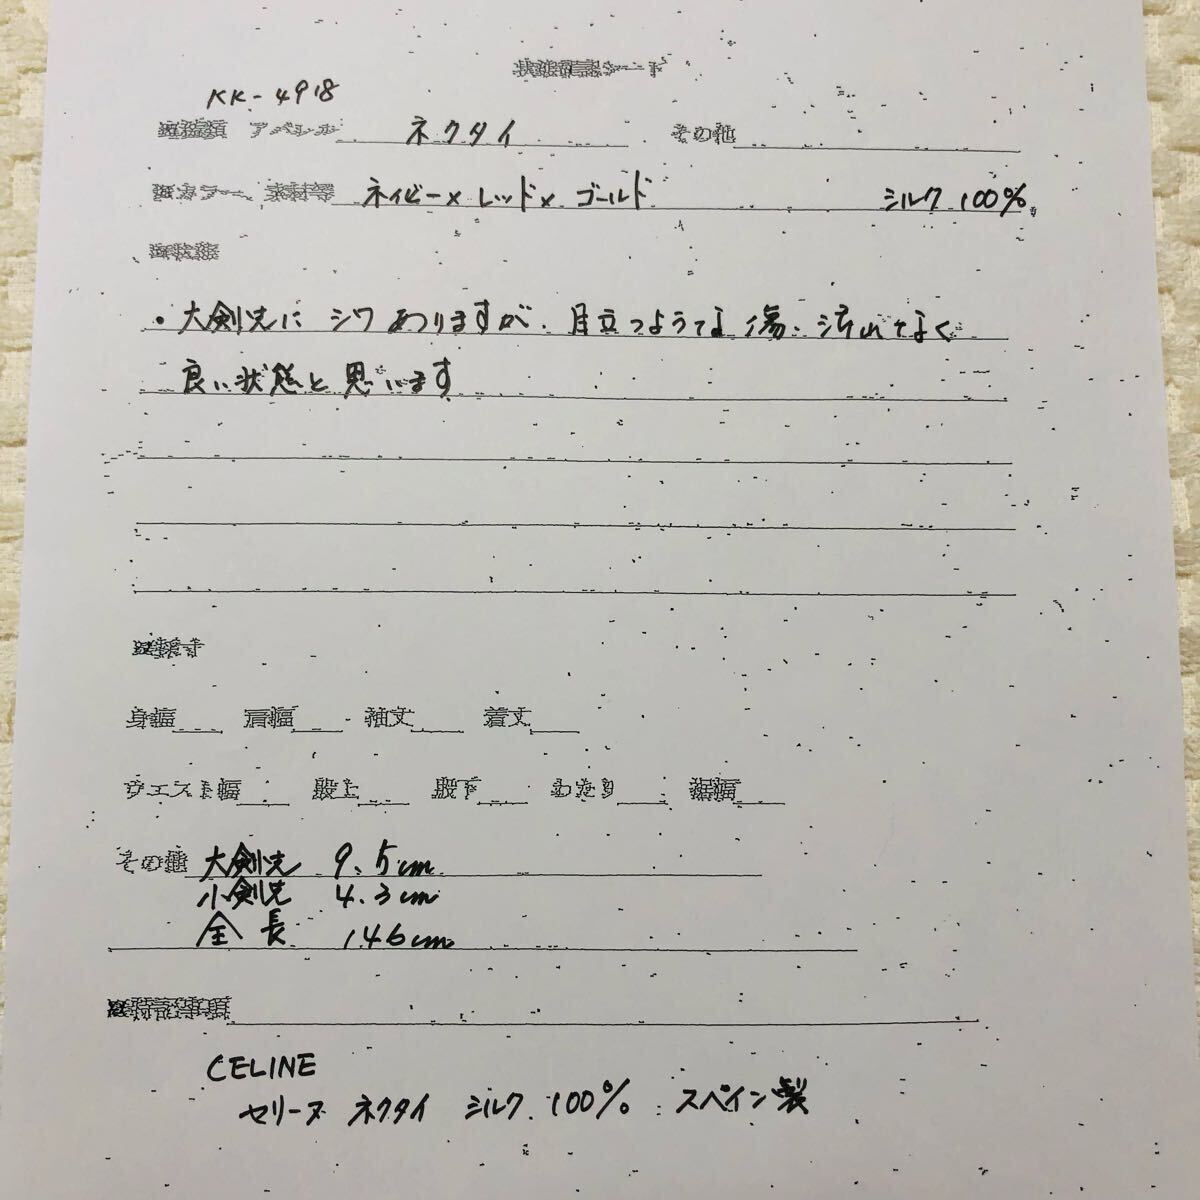 状態確認シート
KK-4918
アパレル ネクタイ その他
カラー、素材等 ネイビー×レッド× ゴールド シルク 100%
・大剣先に シワ ありますが、目立つような 傷、汚れ なく
良い状態と思います
身幅 肩幅 袖丈 着丈
ウエスト幅 股上 股下 わたり 裾幅
その他 大剣先 9.5cm
小剣先 4.3cm
全長 146cm
※特記事項
CELINE
セリーヌ ネクタイ シルク 100% スペイン製